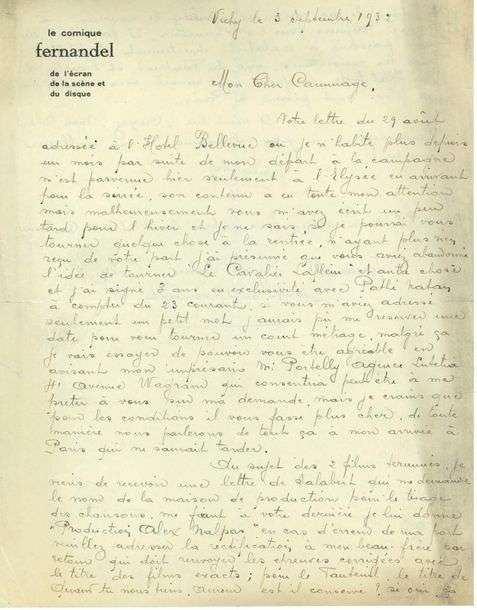 Vichy le 3 septembre 193
le comique
fernandel
de l'écran
de la scène et
du disque
Mon Cher
Votre lettre du 29 août
adressée à l'Hotel Bellevue ou je n'habite plus depuis
un mois par suite de mon départ à la campagne
n'est parvenue hier seulement à l'Elysée en arrivant
pour la soirée, son contenu a eu toute mon attention
mais malheureusement vous m'avez écrit un peu
tard pour l'hiver et je ne sais si je pourrai vous
tourner quelque chose à la rentrée, n'ayant plus rien
reçu de votre part j'ai présumé que vous aviez abandonné
l'idée de tourner "Le Cavalier Lafleur" et autre chose
et j'ai signé 3 ans en exclusivité avec Pathé Natan
à compter du 23 courant, si vous m'aviez adressé
seulement un petit mot j'aurais pu me réserver une
date pour vous tourner un court métrage, malgré ça
je vais essayer de pouvoir vous être agréable en
avisant mon imprésario Mr Portelly Agence Lutetia
41 avenue Wagram qui consentira peut être à me
preter à vous sur ma demande, mais je crains que
pour les conditions il vous fasse plus cher, de toute
manière nous parlerons de tout ça à mon arrivée à
Paris qui ne saurait tarder.
Au sujet des 2 films terminés, je
viens de recevoir une lettre de Salabert qui me demande
le nom de la maison de production pour le tirage
des chansons, me fiant à votre dernière je lui donne
"Production Alex Nalpas" en cas d'erreur de ma part
veuillez adresser la rectification à mon beau-frère par
retour qui doit renvoyer les épreuves corrigées avec
le titre des films exacts; pour le Tauteuil le titre de
Quand tu nous tiens, amour est il conservé? si oui, les